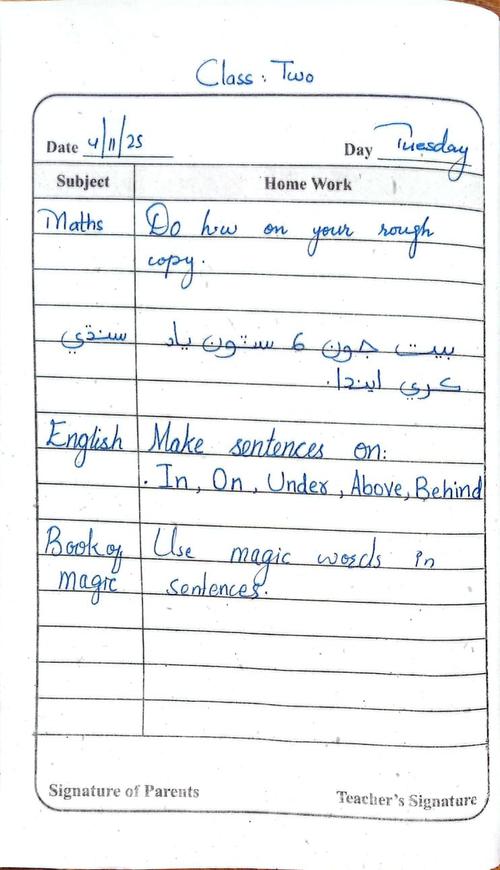 Class : Two
Date 4/11/25 Day Tuesday
Subject Home Work
Maths Do h.w on your rough
copy.
سنڌي بيت جون 6 ستون ياد
ڪري ايندا.
English Make sentences on:
. In, On, Under, Above, Behind
Book of Use magic words in
magic sentences.
Signature of Parents Teacher's Signature